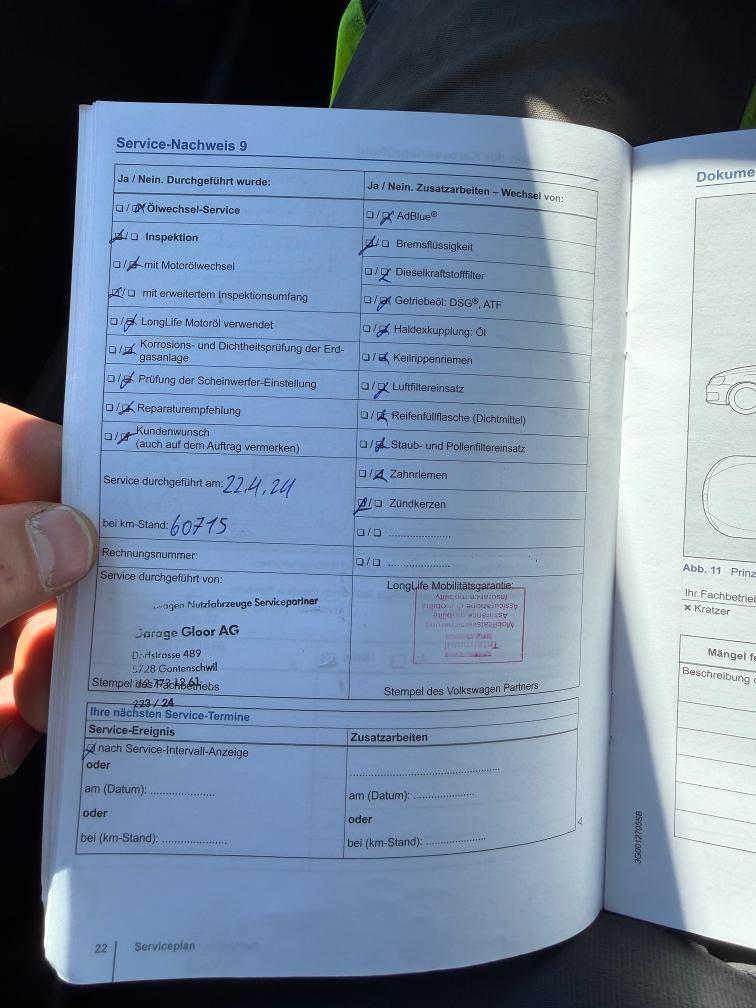 Service-Nachweis 9
Ja / Nein. Durchgeführt wurde:
Ölwechsel-Service
Inspektion
mit Motorölwechsel
mit erweitertem Inspektionsumfang
LongLife Motoröl verwendet
Korrosions- und Dichtheitsprüfung der Erd-
gasanlage
Prüfung der Scheinwerfer-Einstellung
Reparaturempfehlung
Kundenwunsch
(auch auf dem Auftrag vermerken)
Service durchgeführt am: 22.4.24
bei km-Stand: 60715
Rechnungsnummer:
Service durchgeführt von:
Nutzfahrzeuge Servicepartner
Garage Gloor AG
Dorfstrasse 489
5728 Gontenschwil
Stempel des Fachbetriebs
223 / 24
Ja / Nein. Zusatzarbeiten – Wechsel von:
AdBlue®
Bremsflüssigkeit
Dieselkraftstofffilter
Getriebeöl: DSG®, ATF
Haldexkupplung: Öl
Keilrippenriemen
Luftfiltereinsatz
Reifenfüllflasche (Dichtmittel)
Staub- und Pollenfiltereinsatz
Zahnriemen
Zündkerzen
LongLife Mobilitätsgarantie:
Insurance mobility
Assicurazione di mobilità
Assurance mobilité
Mobilitätsversicherung
Totalmobil
Stempel des Volkswagen Partners
Ihre nächsten Service-Termine
Service-Ereignis
nach Service-Intervall-Anzeige
oder
am (Datum): ..................
oder
bei (km-Stand): ..................
Zusatzarbeiten
am (Datum): ..................
oder
bei (km-Stand): ..................
22 Serviceplan
3G0012705SB
Dokume
Abb. 11 Prinz
Ihr Fachbetrieb
× Kratzer
Mängel fe
Beschreibung